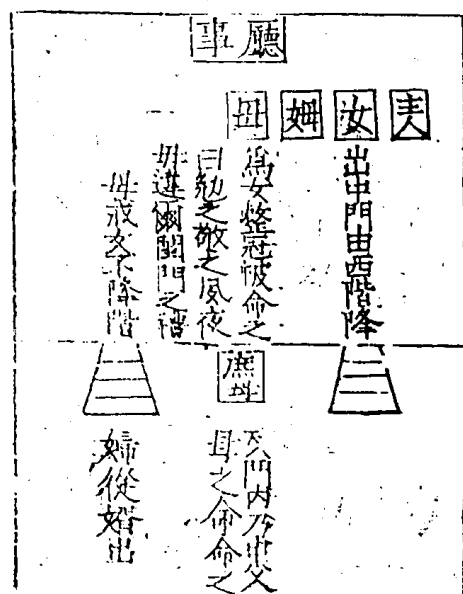 廳事
女
姆
母
出中門由西階降
為女整冠帔命之
曰勉之敬之夙夜
毋違爾閨門之禮
母戒女不降階
庶母
及門內乃申父
母之命命之
婦從婿出